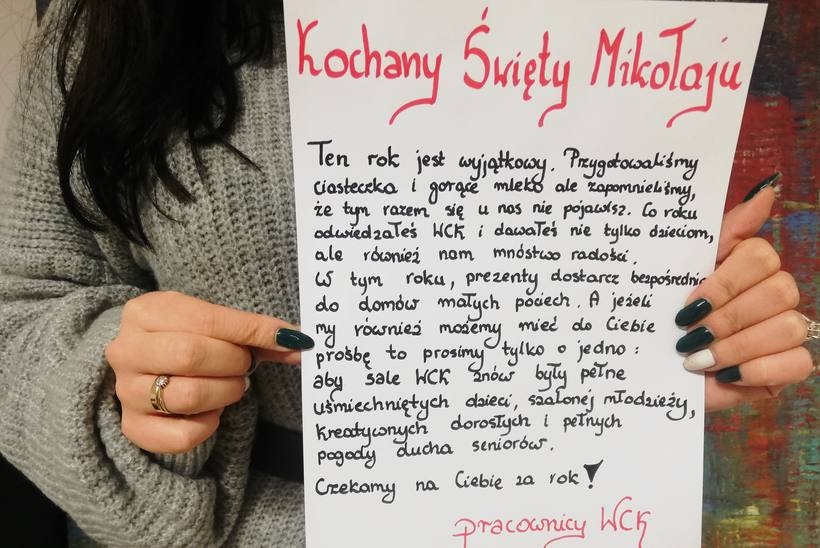 Kochany Święty Mikołaju
Ten rok jest wyjątkowy. Przygotowaliśmy
ciasteczka i gorące mleko ale zapomnieliśmy,
że tym razem się u nas nie pojawisz. Co roku
odwiedzałeś WCK i dawałeś nie tylko dzieciom,
ale również nam mnóstwo radości.
W tym roku, prezenty dostarcz bezpośrednio
do domów małych pociech. A jeżeli
my również możemy mieć do Ciebie
prośbę to prosimy tylko o jedno :
aby sale WCK znów były pełne
uśmiechniętych dzieci, szalonej młodzieży,
kreatywnych dorosłych i pełnych
pogody ducha seniorów.
Czekamy na Ciebie za rok!
pracownicy WCK